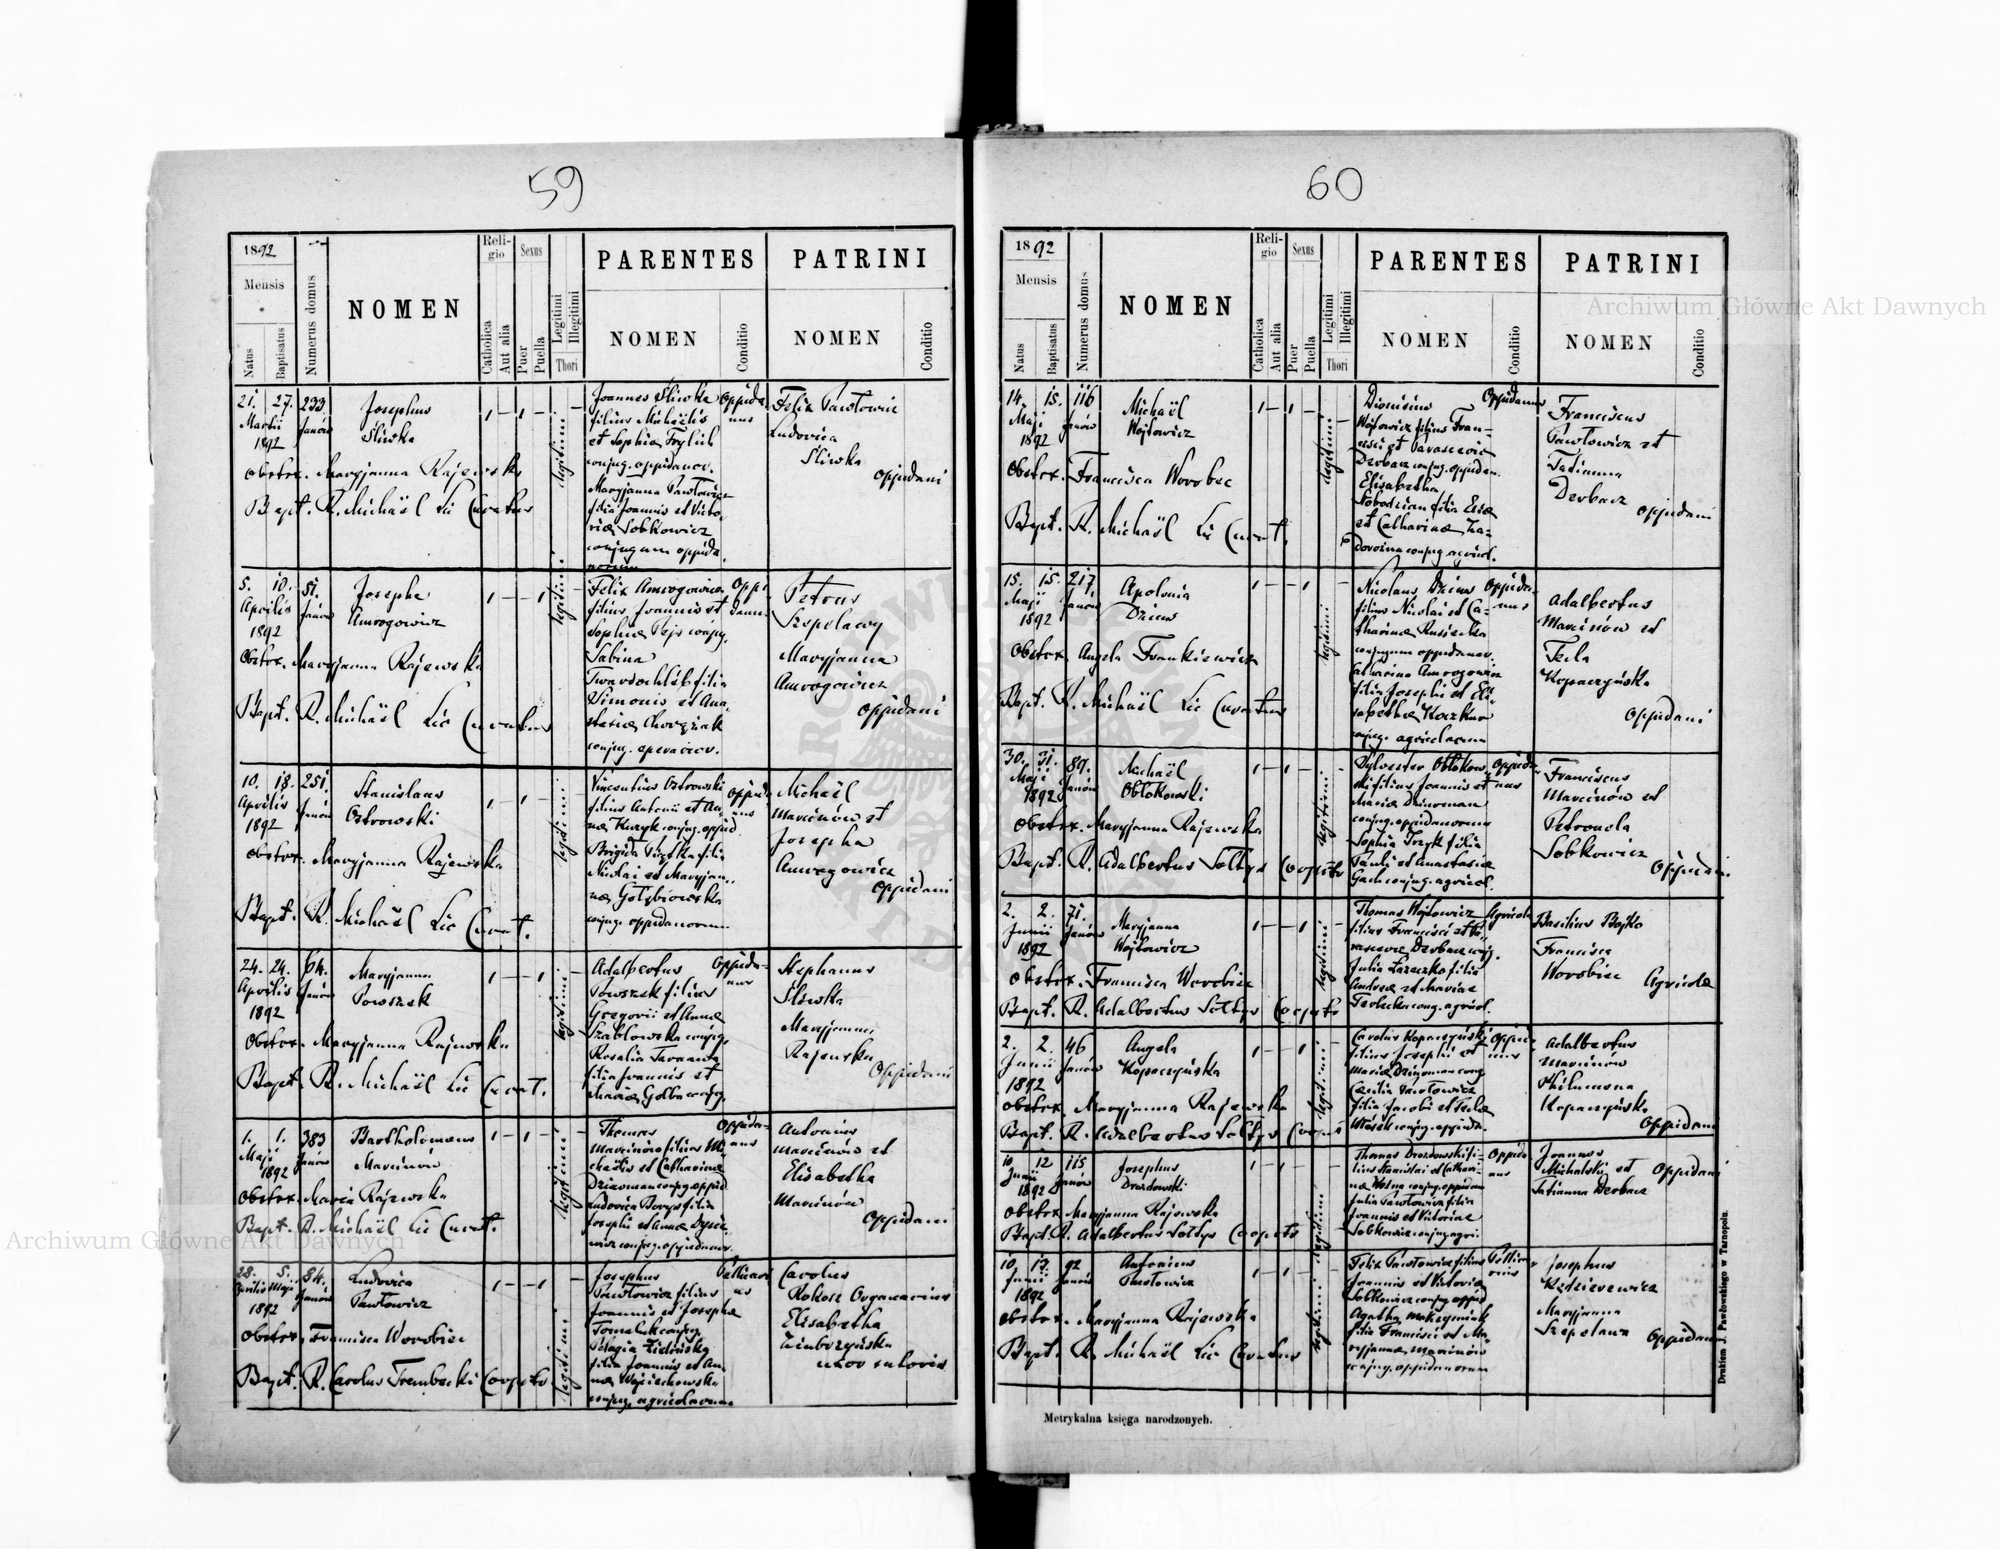 59
1892
Mensis
Natus
Baptisatus
Numerus domus
NOMEN
Religio
Catholica
Aut alia
Sexus
Puer
Puella
Legitimi
Illegitimi
Thori
PARENTES
NOMEN
Conditio
PATRINI
NOMEN
Conditio
21. 27. 233
Martii Janów
1892
Josephus
Śliwka
legitimi
Joannes Śliwka
filius Michaëlis
et Sophiæ Frylich
conjug. oppidanor.
Maryjanna Pawłowicz
filia Joannis et Victo-
riæ Sobkowicz
conjugum oppida-
norum
Oppida-
nus
Felix Pawłowicz
Ludovica
Śliwka
oppidani
Obstex. Maryjanna Rajewska
Bapt. R. Michaël Lic Curatus
5. 10. 51.
Aprilis Janów
1892
Josepha
Amrogowicz
legitimi
Felix Amrogowicz
filius Joannis et
Sophiæ Pejs conjug.
Sabina
Twardochleb filia
Simonis et Ana-
stasiæ
conjug.
Oppi-
danus
Petrus
Szepelawy
Maryjanna
Amrogowicz
Oppidani
Obstex. Maryjanna Rajewska
Bapt. R. Michaël Lic Curatus
10. 18. 251
Aprilis Janów
1892
Stanislaus
Ostrowski
legitimi
Vincentius Ostrowski
filius Antonii et An-
næ Kuzyk conjug. oppid.
Brigida filia
Nicolai et Maryjan-
næ Gołębiowska
conjug. oppidanorum
Oppida-
nus
Michaël
Marcinów et
Josepha
Amrogowicz
Oppidani
Obstex. Maryjanna Rajewska
Bapt. R. Michaël Lic Curat.
24. 24. 64.
Aprilis Janów
1892
Maryjanna
Powszek
legitimi
Adalbertus
Powszek filius
Gregorii et Annæ
Szablowska conjug.
Rosalia
filia Joannis et
Mariæ Gołba conjug.
Oppida-
nus
Stephanus
Śliwka
Maryjanna
Rajewska
Oppidani
Obstex. Maryjanna Rajewska
Bapt. R. Michaël Lic Curat.
1. 1. 383
Maji Janów
1892
Bartholomeus
Marcinów
legitimi
Thomas
Marcinów filius Mi-
chaëlis et Catharinæ
Dziuroman conjug. oppid.
Ludovica Borys filia
Josephi et Annæ
conjug. oppidanor.
Oppida-
nus
Antonius
Marcinów et
Elisabetha
Marcinów
Oppidani
Obstex. Maria Rajewska
Bapt. R. Michaël Lic Curat.
28. 5. 84.
Aprilis Maji Janów
1892
Ludovica
Pawłowicz
legitimi
Josephus
Pawłowicz filius
Joannis et Josephæ
Tomaluk conjug.
Pelagia Zielińska
filia Joannis et An-
næ Wojciechowska
conjug. agricolarum
Carolus
Rokosz Organarius
Elisabetha
Obstex. Francisca Worobiec
Bapt. R. Carolus Trembecki Cooprts
60
1892
Mensis
Natus
Baptisatus
Numerus domus
NOMEN
Religio
Catholica
Aut alia
Sexus
Puer
Puella
Legitimi
Illegitimi
Thori
PARENTES
NOMEN
Conditio
PATRINI
NOMEN
Conditio
14. 15. 116
Maji Janów
1892
Michaël
Wojtowicz
legitimi
Dionisius
Wojtowicz filius Fran-
cisci et Parasceviæ
Derbacz conjug. oppidan.
Elisabetha
Słobodzian filia Eliæ
et Catharinæ Za-
dorożna conjug. agricol.
Oppidanus
Franciscus
Pawłowicz et
Tatianna
Derbacz
oppidani
Obstex. Francisca Worobec
Bapt. R. Michaël Lic Curat.
15. 15. 217
Maji Janów
1892
Apolonia
Dzius
legitimi
Nicolaus Dzius
filius Nicolai et Ca-
tharinæ Rusiecka
conjugum oppidanor.
Catharina Amrogowicz
filia Josephi et Eli-
sabethæ Koczkur
conjug. agricolarum
Oppida-
nus
Adalbertus
Marcinów et
Tecla
Kopaczyńska
Oppidani
Obstex. Angela Frankiewicz
Bapt. R. Michaël Lic Curatus
30. 31. 89.
Maji Janów
1892
Michaël
Obłokowski
legitimi
Sylvester Obłokow-
ski filius Joannis et
Mariæ Dziuroman
conjug. oppidanorum
Sophia filia
Pauli et Anastasiæ
Gach conjug. agricol.
Oppida-
nus
Franciscus
Marcinów et
Petronela
Sobkowicz
Oppidani
Obstex. Maryjanna Rajewska
Bapt. R. Adalbertus Sołtys Cooprts
2. 2. 71.
Junii Janów
1892
Maryjanna
Wojtowicz
legitimi
Thomas Wojtowicz
filius Francisci et Pa-
rasceviæ Derbacz conj.
Julia Łazeczko filia
Andreæ et Mariæ
conjug. agricol.
Agricola
Basilius Bojko
Francisca
Worobiec
Agricolæ
Obstex. Francisca Worobiec
Bapt. R. Adalbertus Sołtys Cooprts
2. 2. 46
Junii Janów
1892
Angela
Kopaczyńska
legitimi
Carolus Kopaczyński
filius Josephi et
Mariæ Dziuroman conj.
Cæcilia Pawłowicz
filia Jacobi et Teclæ
Włosek conjug. oppida.
Oppida-
nus
Adalbertus
Marcinów
Philumena
Kopaczyńska
Oppidani
Obstex. Maryjanna Rajewska
Bapt. R. Adalbertus Sołtys Cooprts
10. 12 115
Junii Janów
1892
Josephus
Drozdowski
legitimi
Thomas Drozdowski fi-
lius Stanislai et Cathari-
næ Wolna conjug. oppidan.
Julia Pawłowicz filia
Joannis et Victoriæ
Sobkowicz conjug. agri.
Oppida-
nus
Joannes
Michalski et
Tatianna Derbacz
Oppidani
Obstex. Maryjanna Rajewska
Bapt. R. Adalbertus Sołtys Cooprts
10. 12. 92
Junii Janów
1892
Antonius
Pawłowicz
legitimi
Felix Pawłowicz filius
Joannis et Victoriæ
Sobkowicz conjug. oppid.
Agatha
filia Francisci et Ma-
ryjannæ Marcinów
conjug. oppidanorum
Josephus
Kędzierewicz
Maryjanna
Szepelawa
Oppidani
Obstex. Maryjanna Rajewska
Bapt. R. Michaël Lic Curatus
Metrykalna księga narodzonych.
Drukiem J. Pawłowskiego w Tarnopolu.
Archiwum Główne Akt Dawnych
Archiwum Główne Akt Dawnych